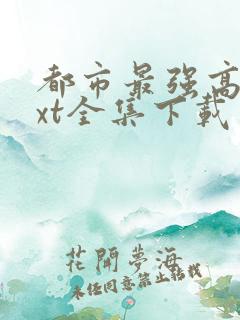 都市最强高
xt全集下载
花開夢海
未经同意禁止转载